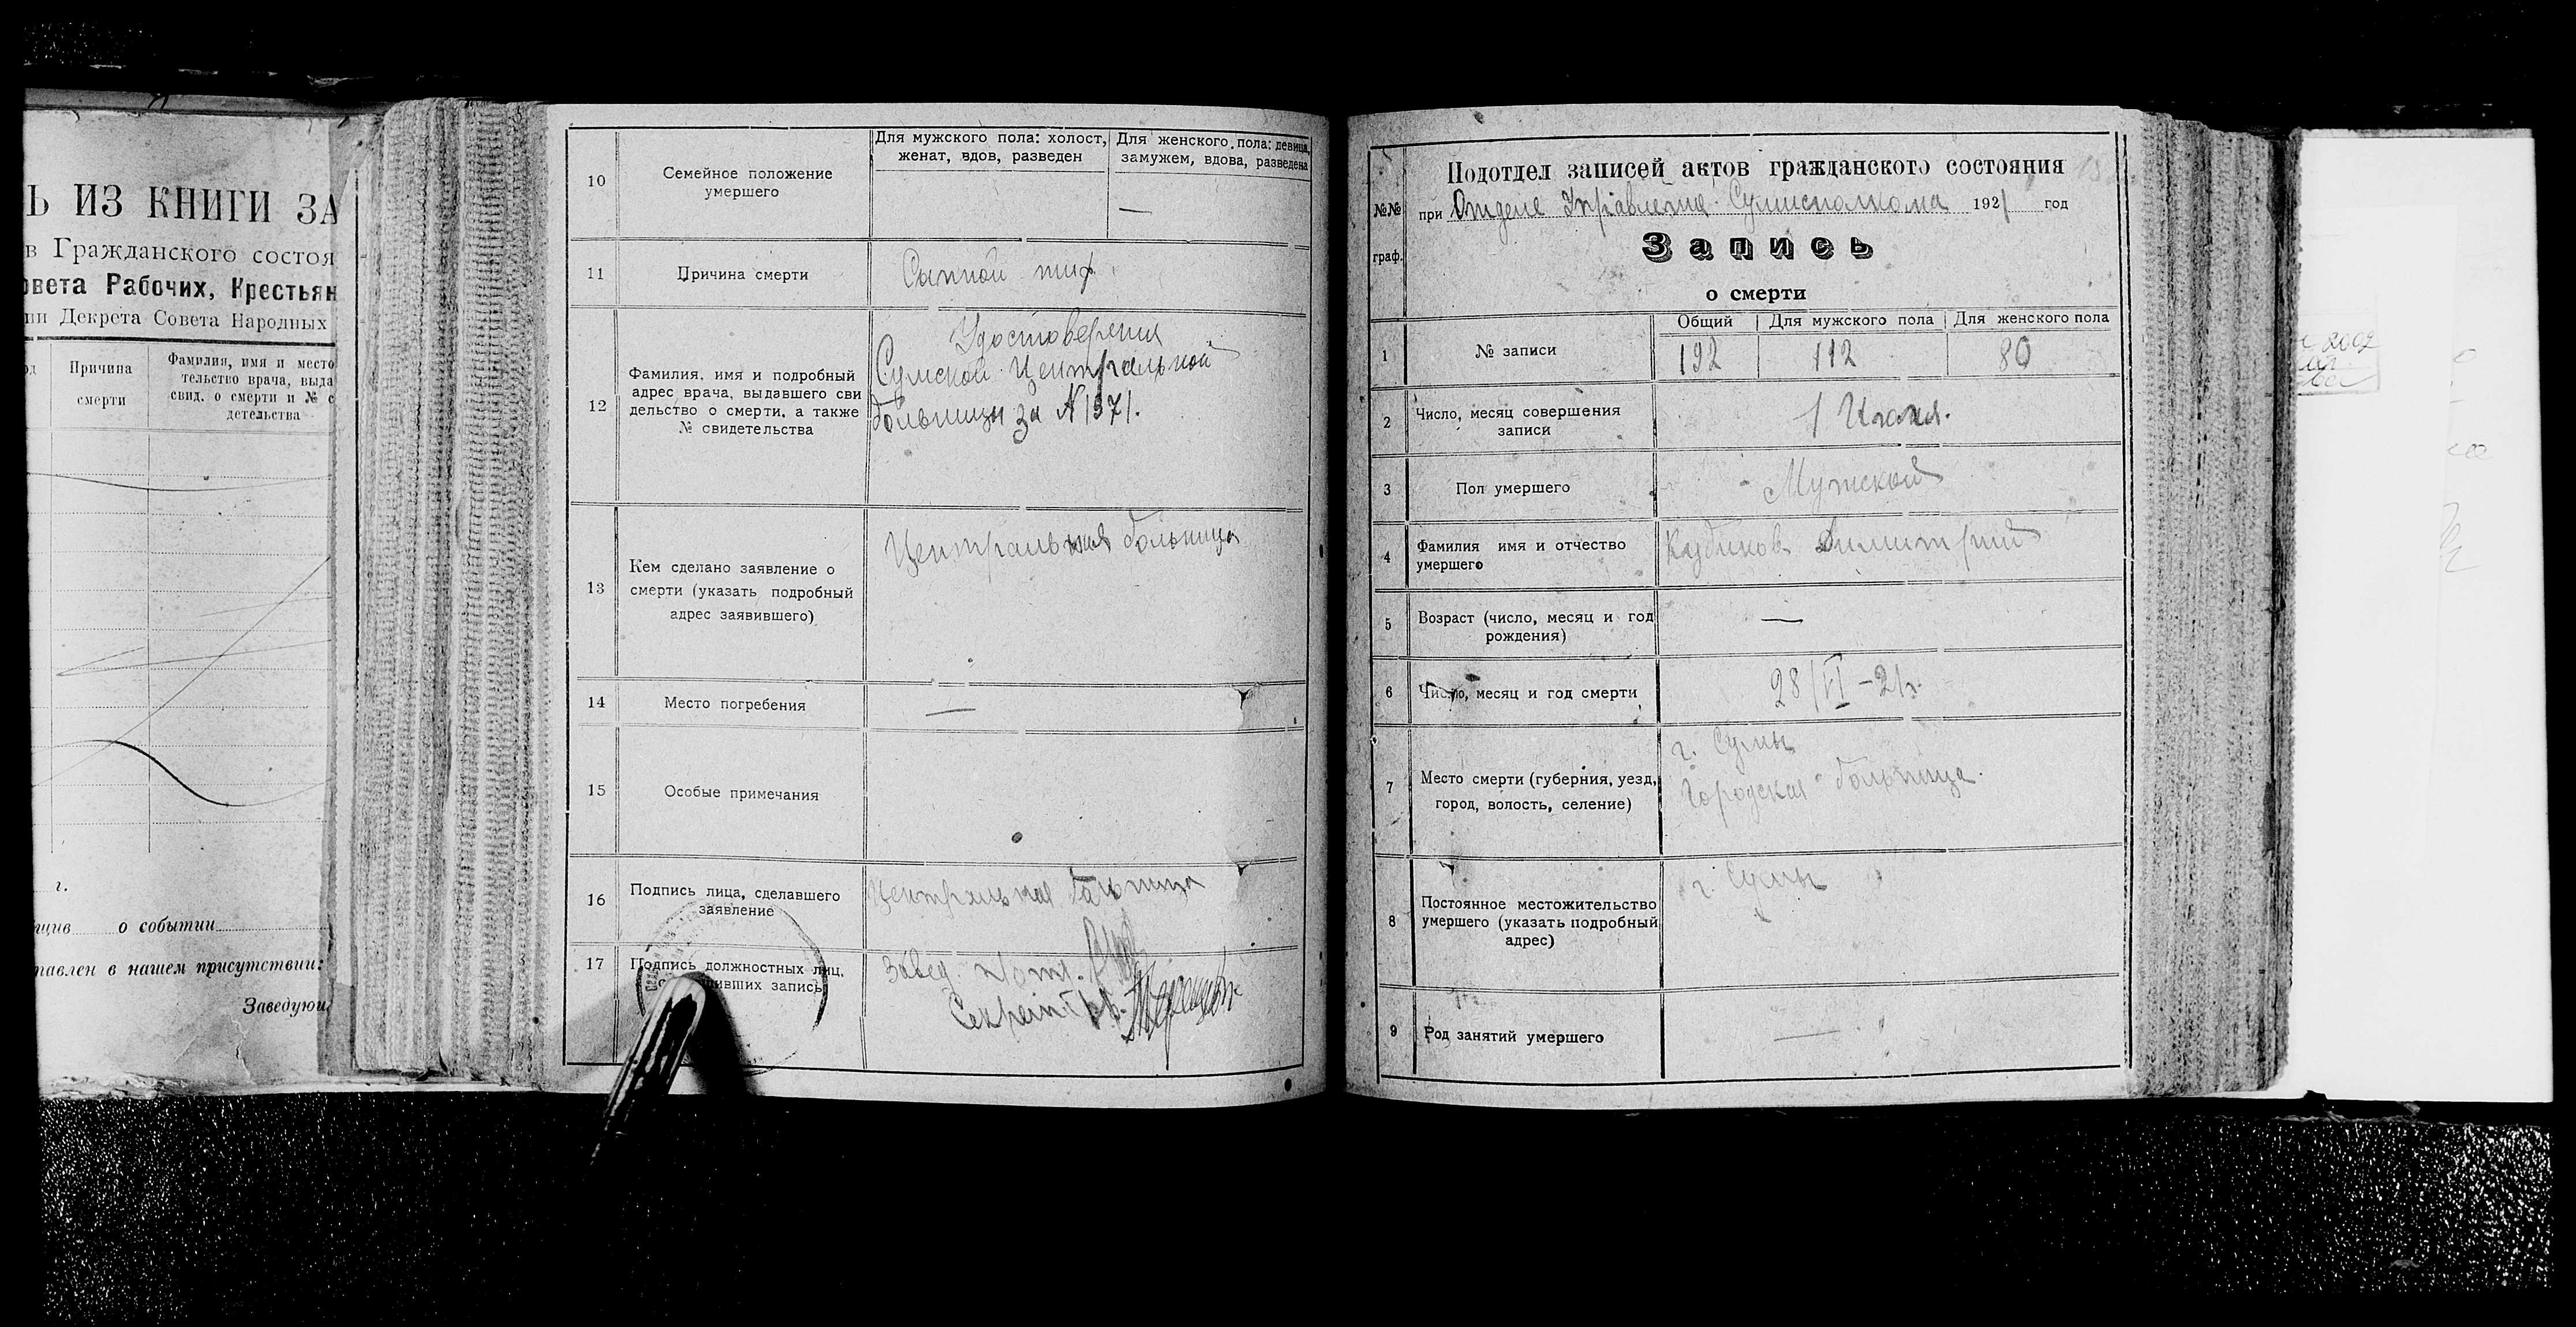 Ь ИЗ КНИГИ ЗА
в Гражданского состоя
овета Рабочих, Крестьян
ии Декрета Совета Народных
Причина
смерти
Фамилия, имя и место
тельство врача, выда
свид. о смерти и № с
детельства
г.
о событии
тавлен в нашем присутствии:
Заведующ
10
Семейное положение
умершего
Для мужского пола: холост,
женат, вдов, разведен
Для женского пола: девица,
замужем, вдова, разведена
—
11
Причина смерти
Сыпной тиф.
12
Фамилия, имя и подробный
адрес врача, выдавшего сви
дельство о смерти, а также
№ свидетельства
Удостоверения
Сумской Центральной
больницы за № 1371.
13
Кем сделано заявление о
смерти (указать подробный
адрес заявившего)
Центральная больница
14
Место погребения
—
15
Особые примечания
16
Подпись лица, сделавшего
заявление
Центральная больница
17
Подпись должностных лиц,
запись
Завед.
Секрет
Подотдел записей актов гражданского состояния
№№
граф.
при Отделе Управления Сумисполкома 1921 год
Запись
о смерти
1
№ записи
Общий
Для мужского пола
Для женского пола
192
112
80
2
Число, месяц совершения
записи
1 Июля.
3
Пол умершего
Мужской
4
Фамилия имя и отчество
умершего
Кубиков Димитрий
5
Возраст (число, месяц и год
рождения)
—
6
Число, месяц и год смерти
28/VI–21 г.
7
Место смерти (губерния, уезд,
город, волость, селение)
г. Сумы
Городская больница.
8
Постоянное местожительство
умершего (указать подробный
адрес)
г. Сумы
9
Род занятий умершего
—